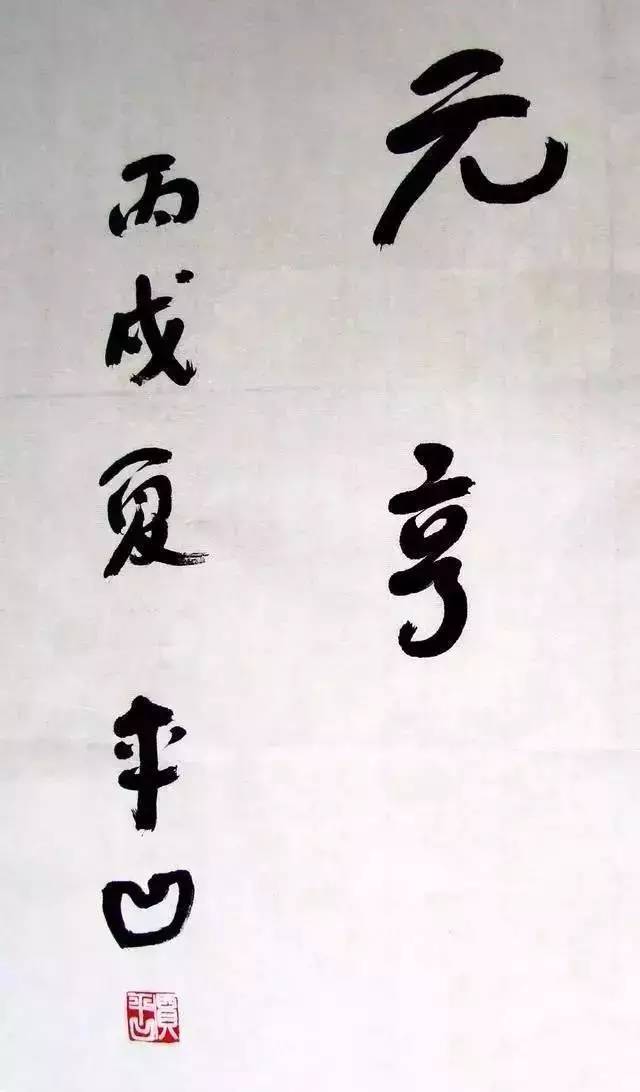 元亨
丙戌夏平凹
賈平凹